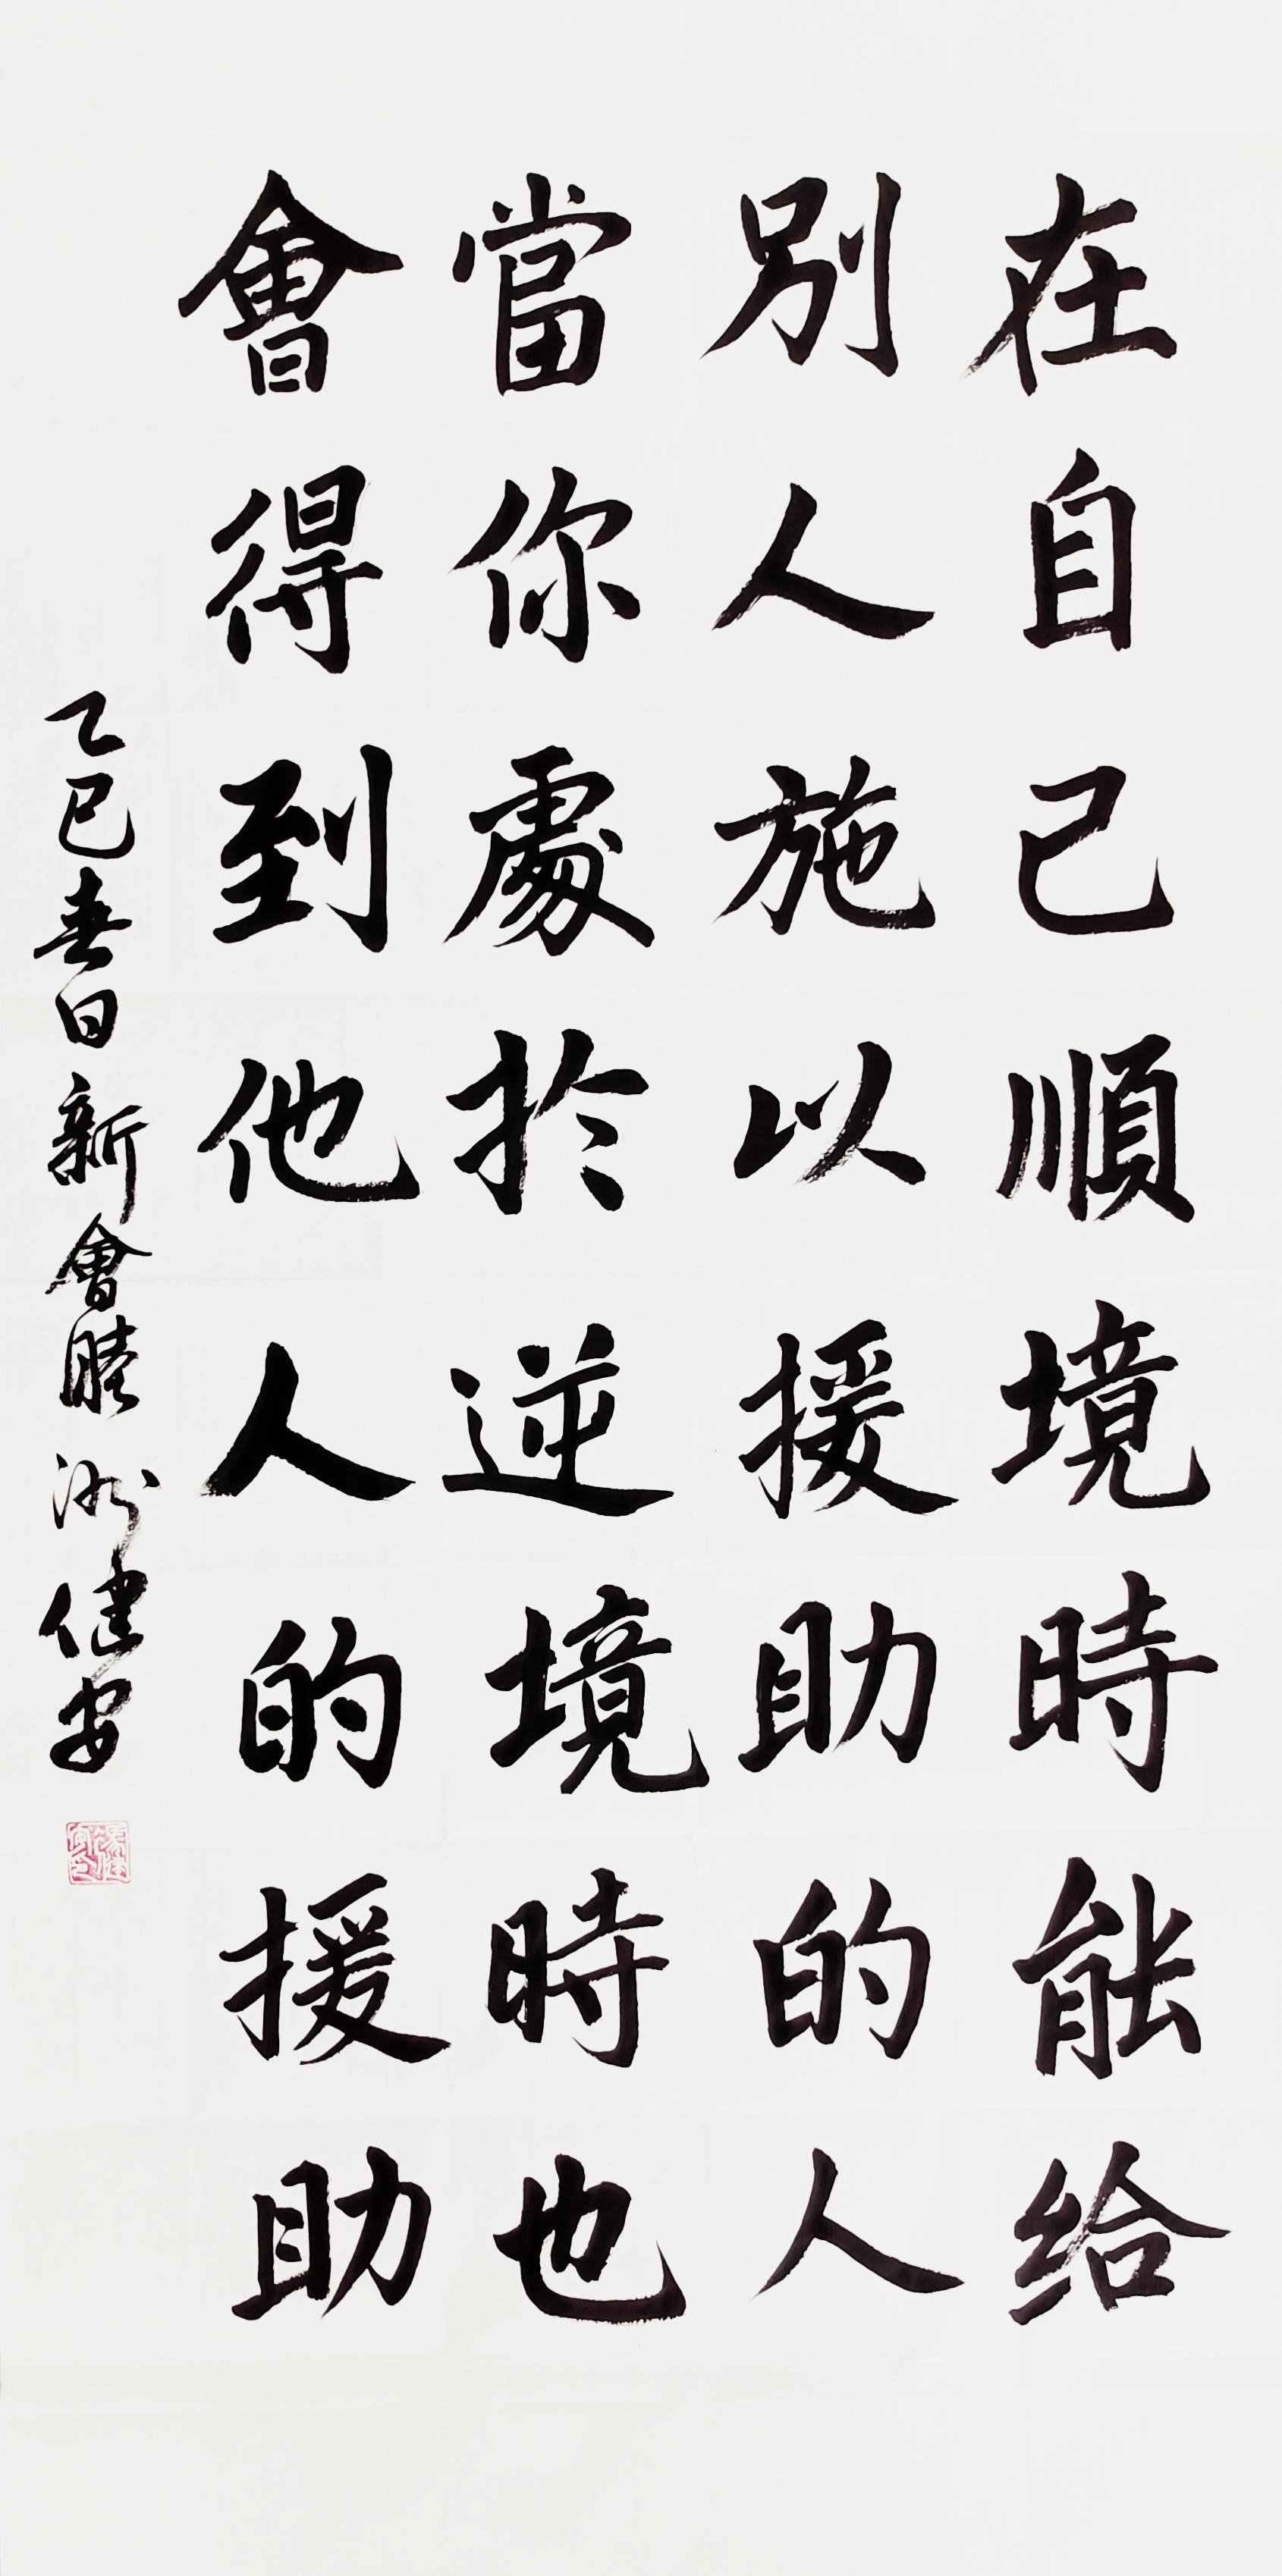 在自己順境時能给
別人施以援助的人
當你處於逆境時也
會得到他人的援助
乙巳春日新會睦洲健安